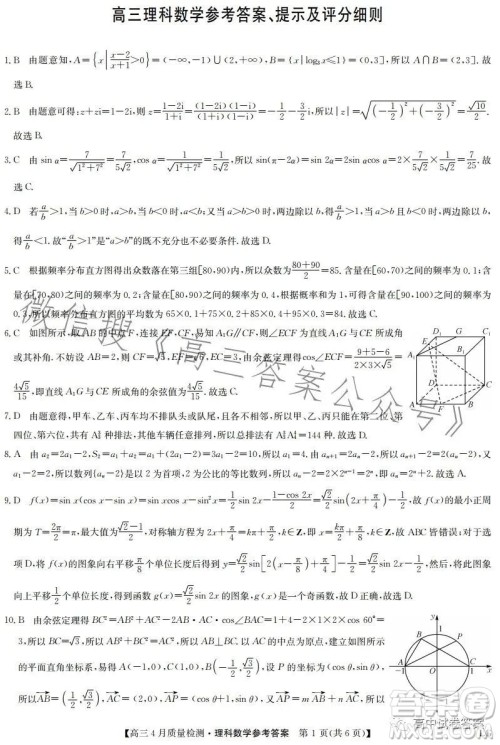 高三理科数学参考答案、提示及评分细则
1. B 由题意知，A={x|(x−2)/(x+1)>0}=(−∞,−1)∪(2,+∞)，B={x|log₃x≤1}=(0,3]，所以 A∩B=(2,3]. 故
选 B.
2. B 由题意可得：z+zi=1−2i，则 z=(1−2i)/(1+i)=(1−2i)(1−i)/((1+i)(1−i))=−1/2−3/2 i，所以|z|=√((−1/2)²+(−3/2)²)=√10/2.
故选 B.
3. C 由 sin α=7/√(1²+7²)=7/(5√2)，cos α=1/√(1²+7²)=1/(5√2)，所以 sin(π−2α)=sin 2α=2sin αcos α=2×7/(5√2)×1/(5√2)=7/25. 故
选 C.
4. D 若a/b>1，当 b>0 时，a>b，当 b<0 时，a<b；又当 a>b 时，当 b>0 时，两边除以 b，得a/b>1，当 a>b 且 b<0 时，两边除以 b，得
a/b<1. 故“a/b>1”是“a>b”的既不充分也不必要条件. 故选 D.
5. C 根据频率分布直方图得出众数落在第三组[80,90)内，所以众数为(80+90)/2=85，含量在[60,70)之间的频率为 0.1，含
量在[70,80)之间的频率为 0.2，含量在[80,90)之间的频率为 0.4，根据概率和为 1，可得含量在[90,100)之间的频率为
0.3，所以频率分布直方图的平均数为 65×0.1+75×0.2+85×0.4+95×0.3=84. 故选 C.
6. C 如图所示，取 AB 的中点 F，连接 EF，CF，易知 A₁G∥CF，则∠ECF 为直线 A₁G 与 CE 所成角
或其补角. 不妨设 AB=2，则 CF=√5，EF=√6，EC=3，由余弦定理得 cos∠ECF=(9+5−6)/(2×3×√5)=
4√5/15，即直线 A₁G 与 CE 所成角的余弦值为4√5/15. 故选 C.
7. D 由题意得，甲车、乙车、丙车均不排队头或队尾，且各不相邻，所以甲、乙、丙只能在第二位、第
四位、第六位，共有 A₃³ 种排法，其他车任意排列，所以总排法有 A₃³A₄⁴=144 种. 故选 D.
8. A 由 a₁=2a₁−2，S₂=a₁+a₂=2a₂+3a₁−10；所以 a₁=4. 由 aₙ₊₁=2aₙ−2，所以 aₙ₊₁−2=2(aₙ−2)，又
a₁−2=2，所以数列{aₙ−2}是以 2 为首项，2 为公比的等比数列，所以 aₙ−2=2×2ⁿ⁻¹=2ⁿ，即 aₙ=2ⁿ+2. 故选 A.
9. D f(x)=sin x(cos x−sin x)=sin xcos x−sin²x=1/2 sin 2x−(1−cos 2x)/2=√2/2 sin(2x+π/4)−1/2，故 f(x)的最小正周
期为 T=2π/2=π，最大值为(√2−1)/2，对称轴方程为 2x+π/4=kπ+π/2，k∈Z，即 x=kπ/2+π/8，k∈Z，故 ABC 皆错误；对于选
项 D，将 f(x)的图象向右平移π/8个单位长度后得到 y=√2/2 sin[2(x−π/8)+π/4]−1/2=√2/2 sin 2x−1/2，然后将此图象
向上平移1/2个单位长度，得到函数 g(x)=√2/2 sin 2x 的图象，g(x)是一个奇函数，故 D 正确. 故选 D.
10. B 由余弦定理得 BC²=AB²+AC²−2AB·AC·cos∠BAC=1+4−2×1×2×cos 60°=
3，所以 BC=√3，所以 AB²+BC²=AC²，所以 AB⊥BC. 以 AC 的中点为原点，建立如图所示
的平面直角坐标系，易得 A(−1,0)，C(1,0)，B(−1/2,√3/2)，设 P 的坐标为(cos θ,sin θ)，
所以AB=(1/2,√3/2)，AC=(2,0)，AP=(cos θ+1,sin θ)，又AP=mAB+nAC，所以
【高三4月质量检测·理科数学参考答案 第1页(共6页)】
微信搜《高三答案公众号》
高中试卷答案